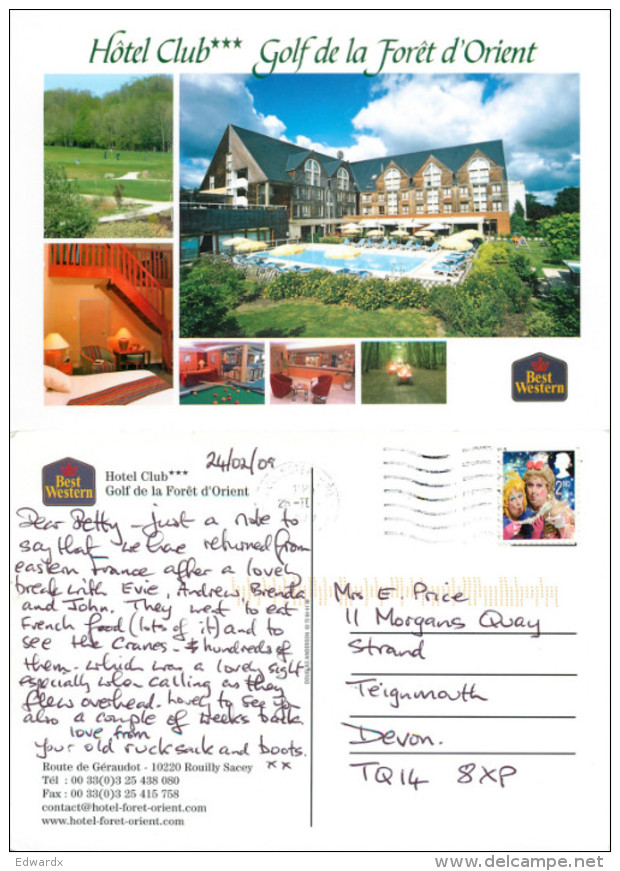 Hôtel Club*** Golf de la Forêt d'Orient
Best
Western
24/02/09
Best
Western
Hotel Club***
Golf de la Forêt d'Orient
2nd
Dear Betty - just a note to
say that we have returned from
eastern France after a lovely
break with Evie, Andrew, Brenda
and John. They went to eat
French food (lots of it) and to
see the Cranes - hundreds of
them. which was a lovely sight
especially when calling as they
flew overhead. lovely to see you
also a couple of weeks back.
love from
your old rucksack and boots.
xx
Mrs E. Price
11 Morgans Quay
Strand
Teignmouth
Devon.
TQ14 8XP
Route de Géraudot - 10220 Rouilly Sacey
Tél : 00 33(0)3 25 438 080
Fax : 00 33(0)3 25 415 758
contact@hotel-foret-orient.com
www.hotel-foret-orient.com
Edwardx
www.delcampe.net